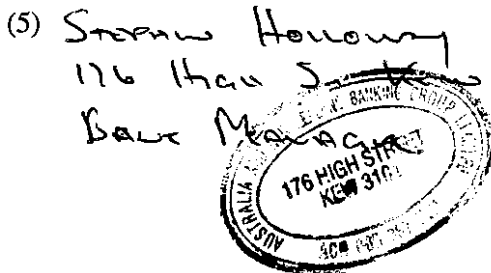 (5) Stephen Holloway
176 High St, Kew
Bank Manager
AUSTRALIA AND BANKING GROUP LIMITED
176 HIGH STREET
KEW 3101
ACN